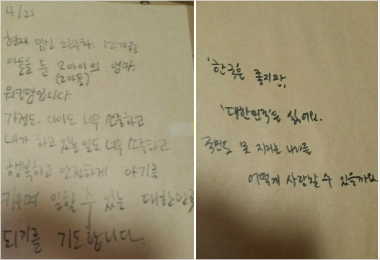 4/21
현재 임신 21주차, 12개월
아들을 둔 2아이의 엄마.
(2아동)
워킹맘입니다.
가정도. 아이도 너무 소중하고
내가 하고 있는 일도 너무 소중하고
행복하고 안전하게 아기를
키우며 일할 수 있는 대한민국
되기를 기도합니다.
'한국'은 좋지만,
'대한민국'은 싫어요.
국민도 못 지키는 나라를
어떻게 사랑할 수 있을까요